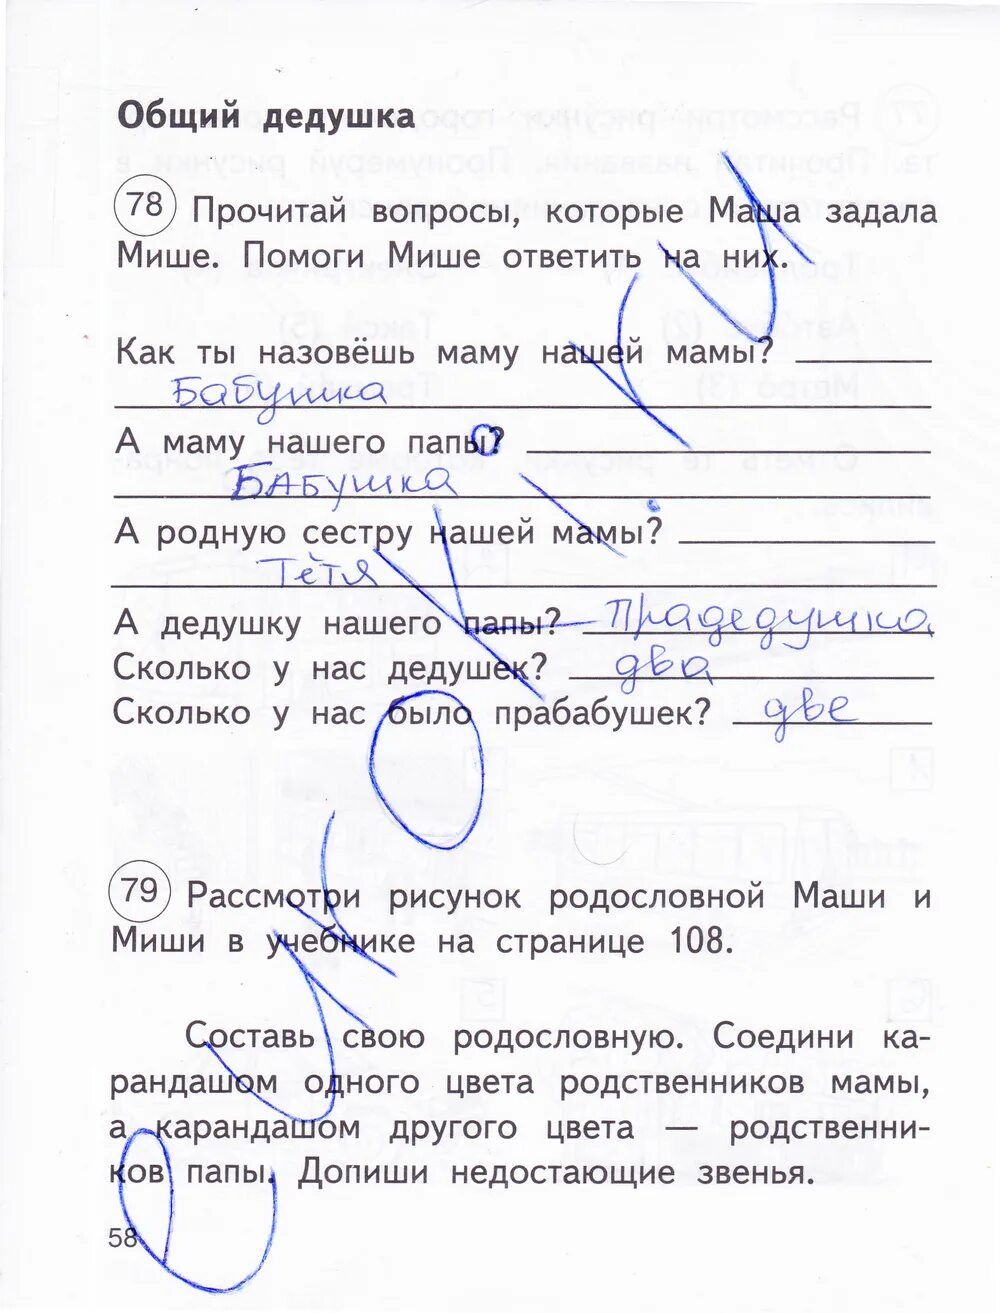 Общий дедушка
78 Прочитай вопросы, которые Маша задала
Мише. Помоги Мише ответить на них.
Как ты назовёшь маму нашей мамы?
Бабушка
А маму нашего папы?
Бабушка
А родную сестру нашей мамы?
Тётя
А дедушку нашего папы? Прадедушка
Сколько у нас дедушек? два
Сколько у нас было прабабушек? две
79 Рассмотри рисунок родословной Маши и
Миши в учебнике на странице 108.
Составь свою родословную. Соедини ка-
рандашом одного цвета родственников мамы,
а карандашом другого цвета — родственни-
ков папы. Допиши недостающие звенья.
58